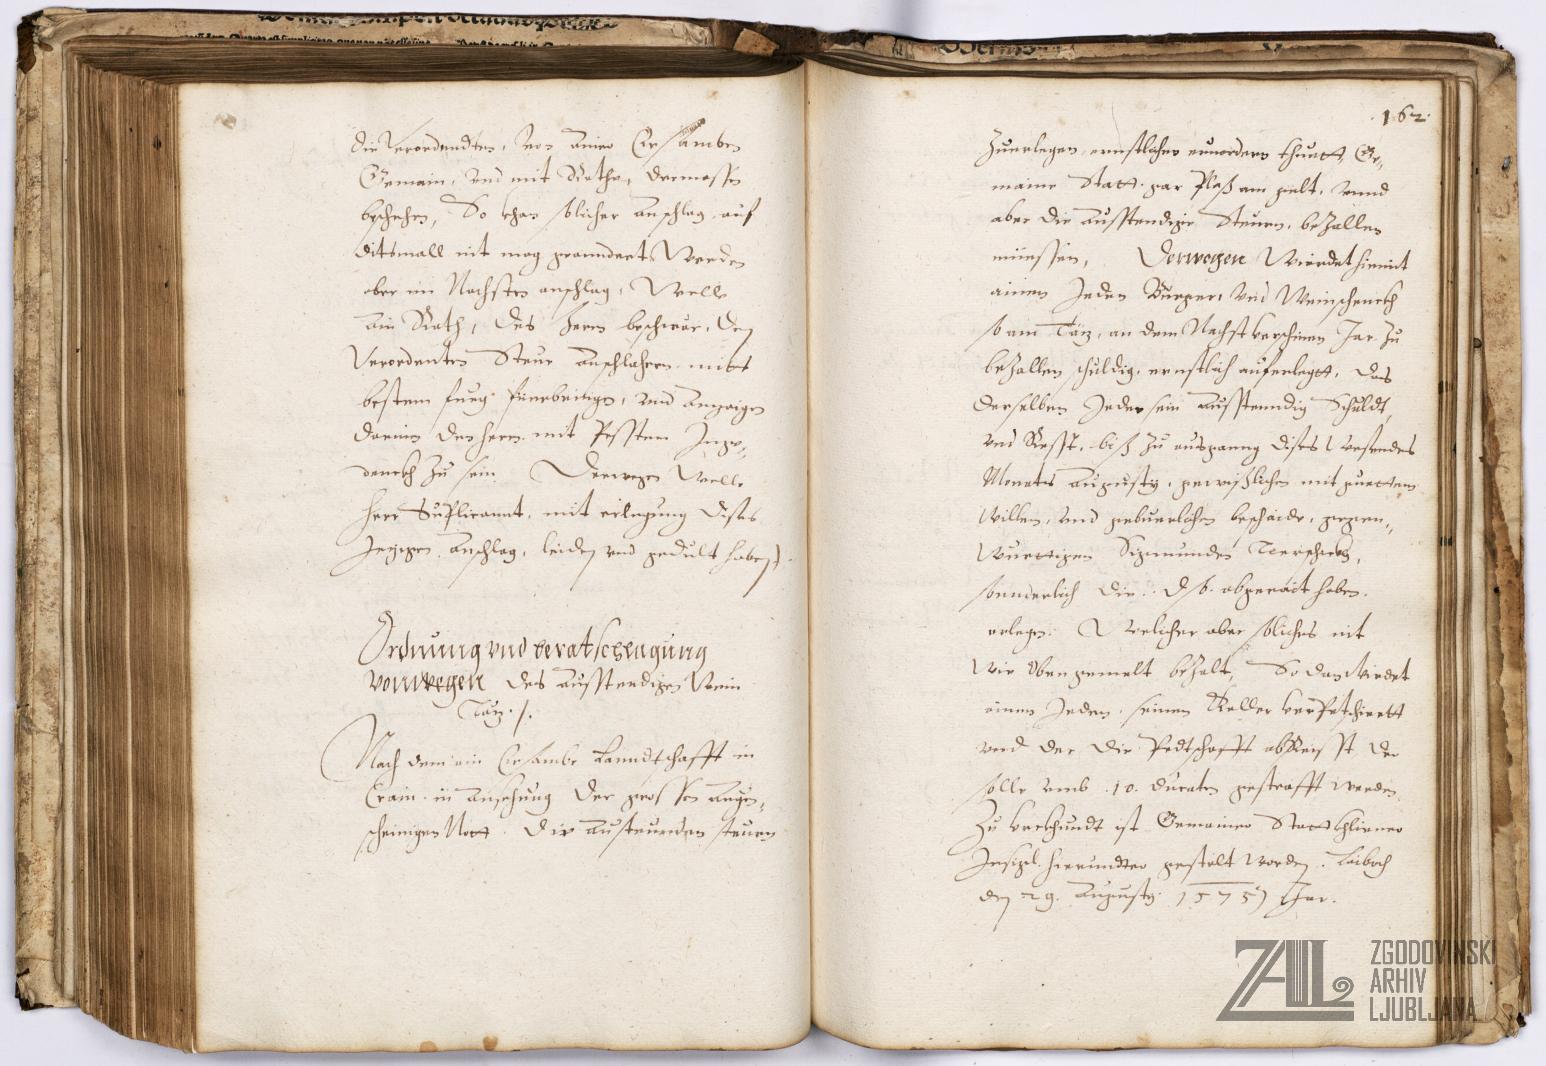 die Verordendten, von ainer Ersamben
Gemain, und mit Rathe, dermassen
beschehen, So khan solicher anschlag auf
ditsmall nit mag geenndert Werden
aber im Nachsten anschlag, Welle
ain Rath, des herrn beschwär, den
Verordenten Steur anschlahern mit
bestem fueg fuerbringen, und anzaigen
darinn den herrn mit Pesstem Inge-
denckh zu sein. Derwegen Welle
herr Suplicannt, mit erlegung dises
Jezigen anschlag, leiden und gedult haben.
Ordnung und beratschlagung
vonwegen des ausstendigen Wein
Täz ./.
Nach dem ein Ersambe Lanndtschafft in
Crain in ansehung der grossen augen-
scheinigen Nott. Die austeunden steurn
162.
Zuerlegen ernstlichen ervordern thuett, Ge-
maine Statt gar Ploß am gelt, unnd
aber die ausstendigen Steurn, beZallen
müessen, Derwegen Wierdet hiemit
ainem Jeden Burger und Weinschenckh
so am Täz, an dem Nachst verschinen Jar zu
beZallen schuldig, ernstlich auferlegtt, das
derselben Jeder sein ausstenndig Schuldt,
und Resst, biß zu ausganng dises
Monats Augusty, gewißlichen mit guettem
Willen, und gebuerlichen beschaide, gegen-
Wurttigen Sigmunden
sonnderlich die abgerait haben.
erlegen. Welicher aber soliches nit
Wie obengemelt beZalt, So dan Wierdet
ainem Jeden, seinen Keller verPetschiertt
und der die Pedtschafft abReisst der
solle umb .10. ducaten gestrafft werden.
Zu Urkhundt ist Gemainer Statt khleiner
Insigl hierundter gestelt Worden. Laibach
den 29. Augusty 1575 Jar.
ZGODOVINSKI
ARHIV
LJUBLJANA